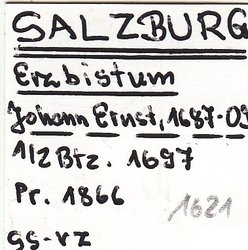 SALZBURG
Erzbistum
Johann Ernst, 1687-09
1/2 Btz. 1697
Pr. 1866
1621
ss-vz